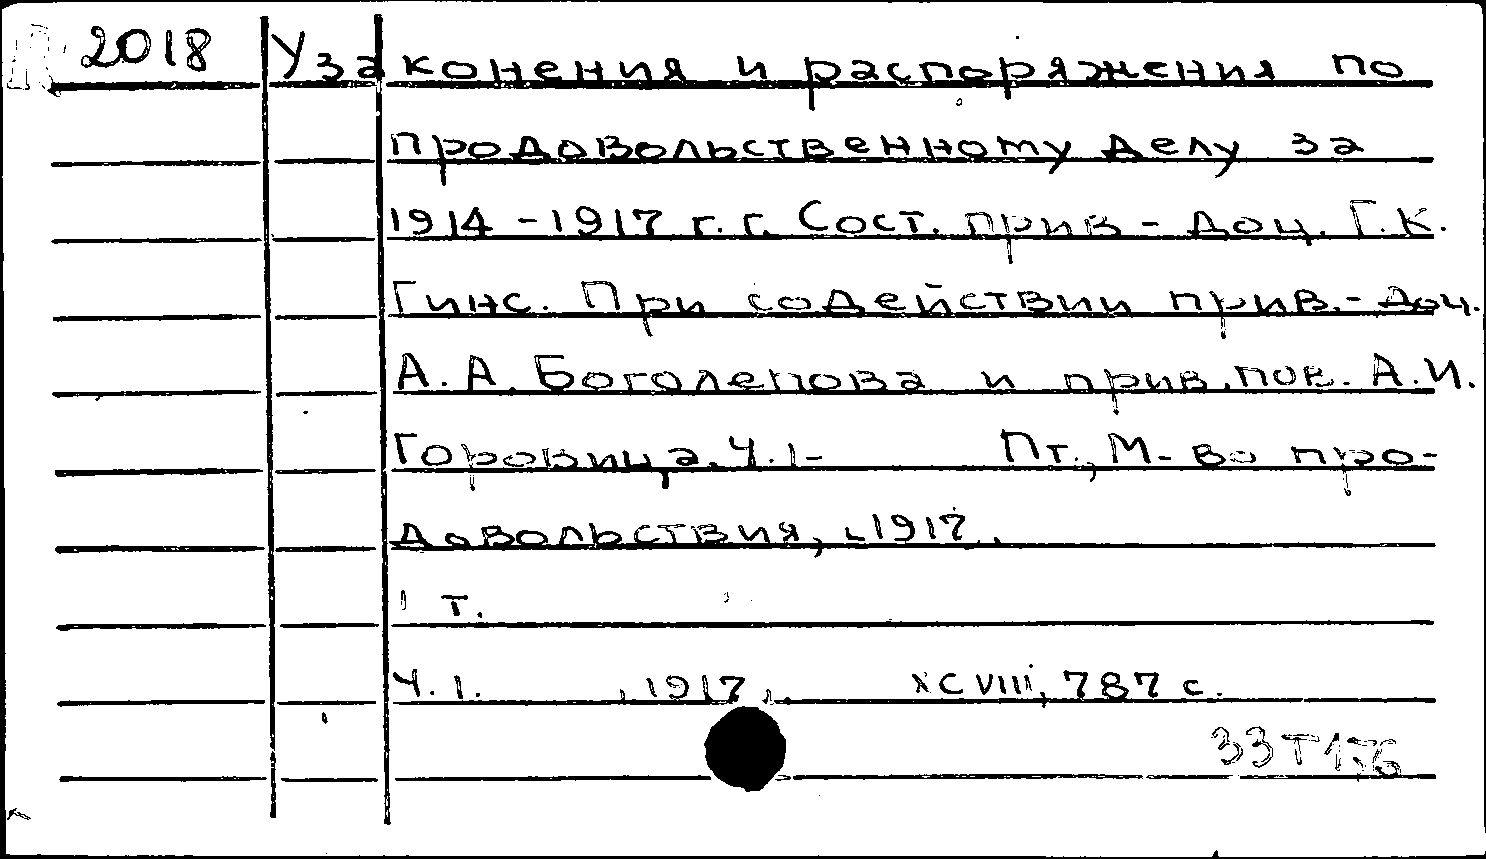 2018 Узаконения и распоряжения по
продовольственному делу за
1914-1917 г.г. Сост. прив-доц. Г.К.
Гинс. При содействии прив.-доц.
А.А. Боголепова и прив. пов. А.И.
Горовица. Ч.1- Пт., М-во про-
довольствия, 1917.
1 т.
Ч.1. , 1917,. XCVIII, 787 с.